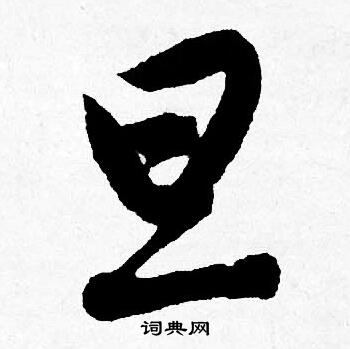 旦
词典网